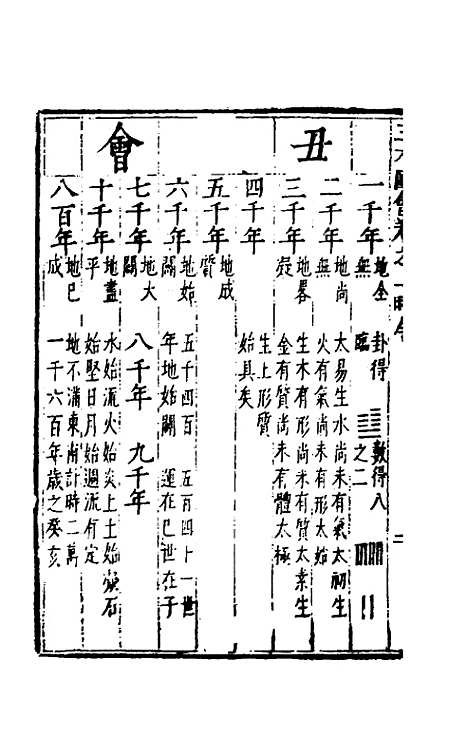 丑會
一千年 地全無 卦得臨 數得八之二
二千年 地尚無 太易生水尚未有氣太初生火有氣尚未有形太始
三千年 地畧凝 生木有形尚未有質太素生金有質尚未有體太極
四千年 生土形質始具矣
五千年 地成質
六千年 地始闢 五千四百年地始闢 五百四十一世運在巳世在子
七千年 地大闢 八千年 九千年
十千年 地盡平 水始流火始炎上土始凝石始堅日月始週流有定
八百年 地已成 地不滿東南計時二萬一千六百年歲之癸亥
卷之一時令 二